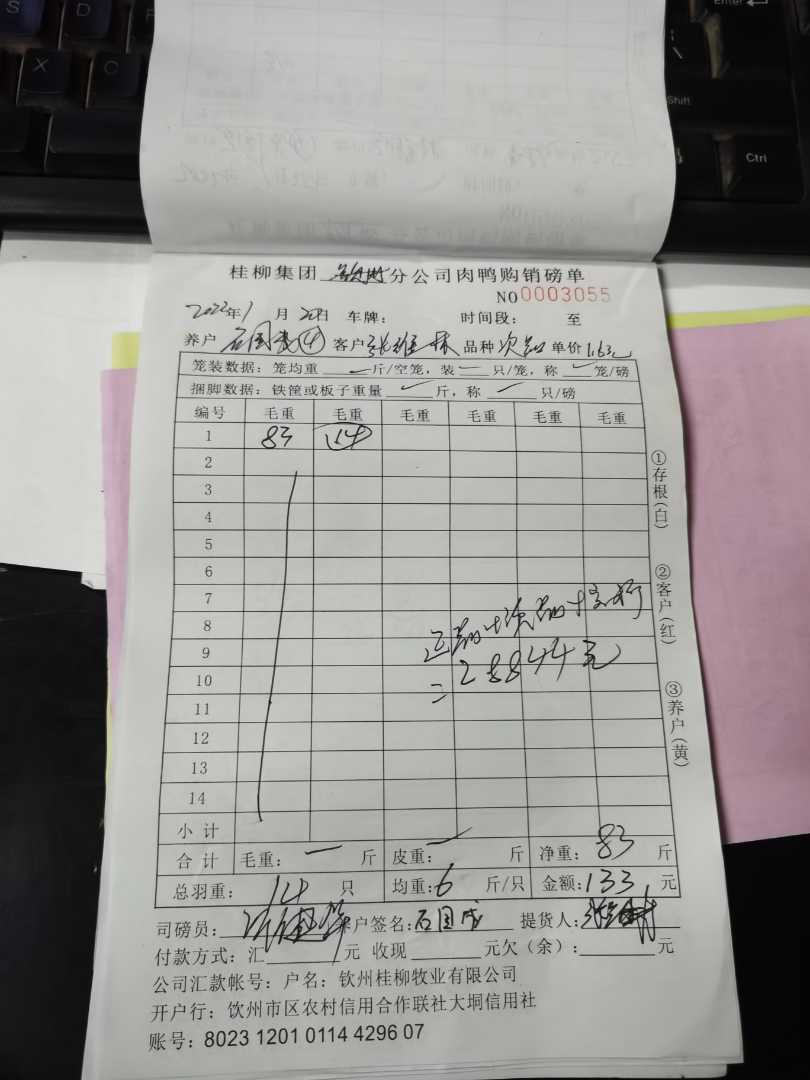 桂柳集团 钦州 分公司肉鸭购销磅单
NO 0003055
2022年1月20日 车牌: 时间段: 至
养户 石国 ④ 客户 张雄林 品种 次品 单价 1.6元
笼装数据: 笼均重 斤/空笼, 装 只/笼, 称 笼/磅
捆脚数据: 铁筐或板子重量 斤, 称 只/磅
编号 毛重 毛重 毛重 毛重 毛重 毛重
1 83 114
2
3
4
5
6
7
8
9
10
11
12
13
14
小计
正品+次品+
=28844元
合计 毛重: 斤 皮重: 斤 净重: 83 斤
总羽重: 14 只 均重: 6 斤/只 金额: 133 元
司磅员: 户签名: 石国 提货人:
付款方式: 汇 元 收现 元欠(余): 元
公司汇款帐号: 户名: 钦州桂柳牧业有限公司
开户行: 饮州市区农村信用合作联社大垌信用社
账号: 8023 1201 0114 4296 07
①存根(白)
②客户(红)
③养户(黄)
S
D
X
C
Enter
\
Shift
Ctrl